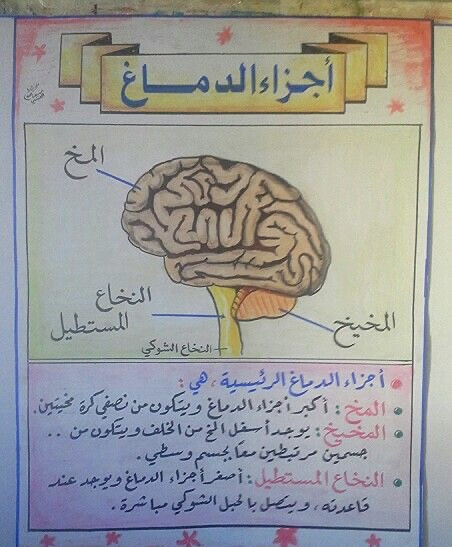 أجزاء الدماغ
المخ
النخاع
المستطيل
المخيخ
النخاع الشوكي
أجزاء الدماغ الرئيسية ، هي :
المخ : أكبر أجزاء الدماغ ويتكون من نصفي كرة مخيتين.
المخيخ : يوجد أسفل المخ من الخلف ويتكون من ..
جسمين مرتبطين معاً بجسم وسطي .
النخاع المستطيل : أصغر أجزاء الدماغ ويوجد عند
قاعدته ، ويتصل بالحبل الشوكي مباشرة .